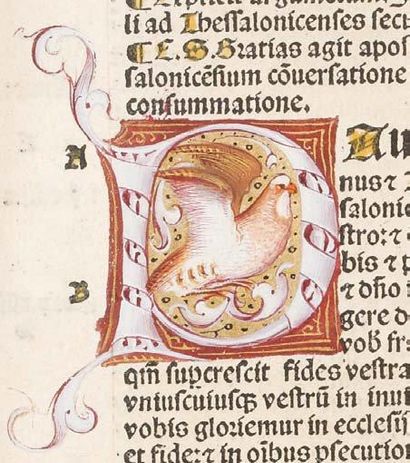 li ad Thessalonicenses sec
¶ C. S. Gratias agit apos
salonicēsium cōuersatione
consummatione.
A
Pau
nus ⁊
saloni
stro: ⁊
B
bis ⁊ p
⁊ dño
gere d
vob̄ fr
qm̄ supcrescit fides vestra
vniuscuiusqꝫ vestrū in inui
vobis gloriemur in ecclesij
et fide: ⁊ in oībus psecution